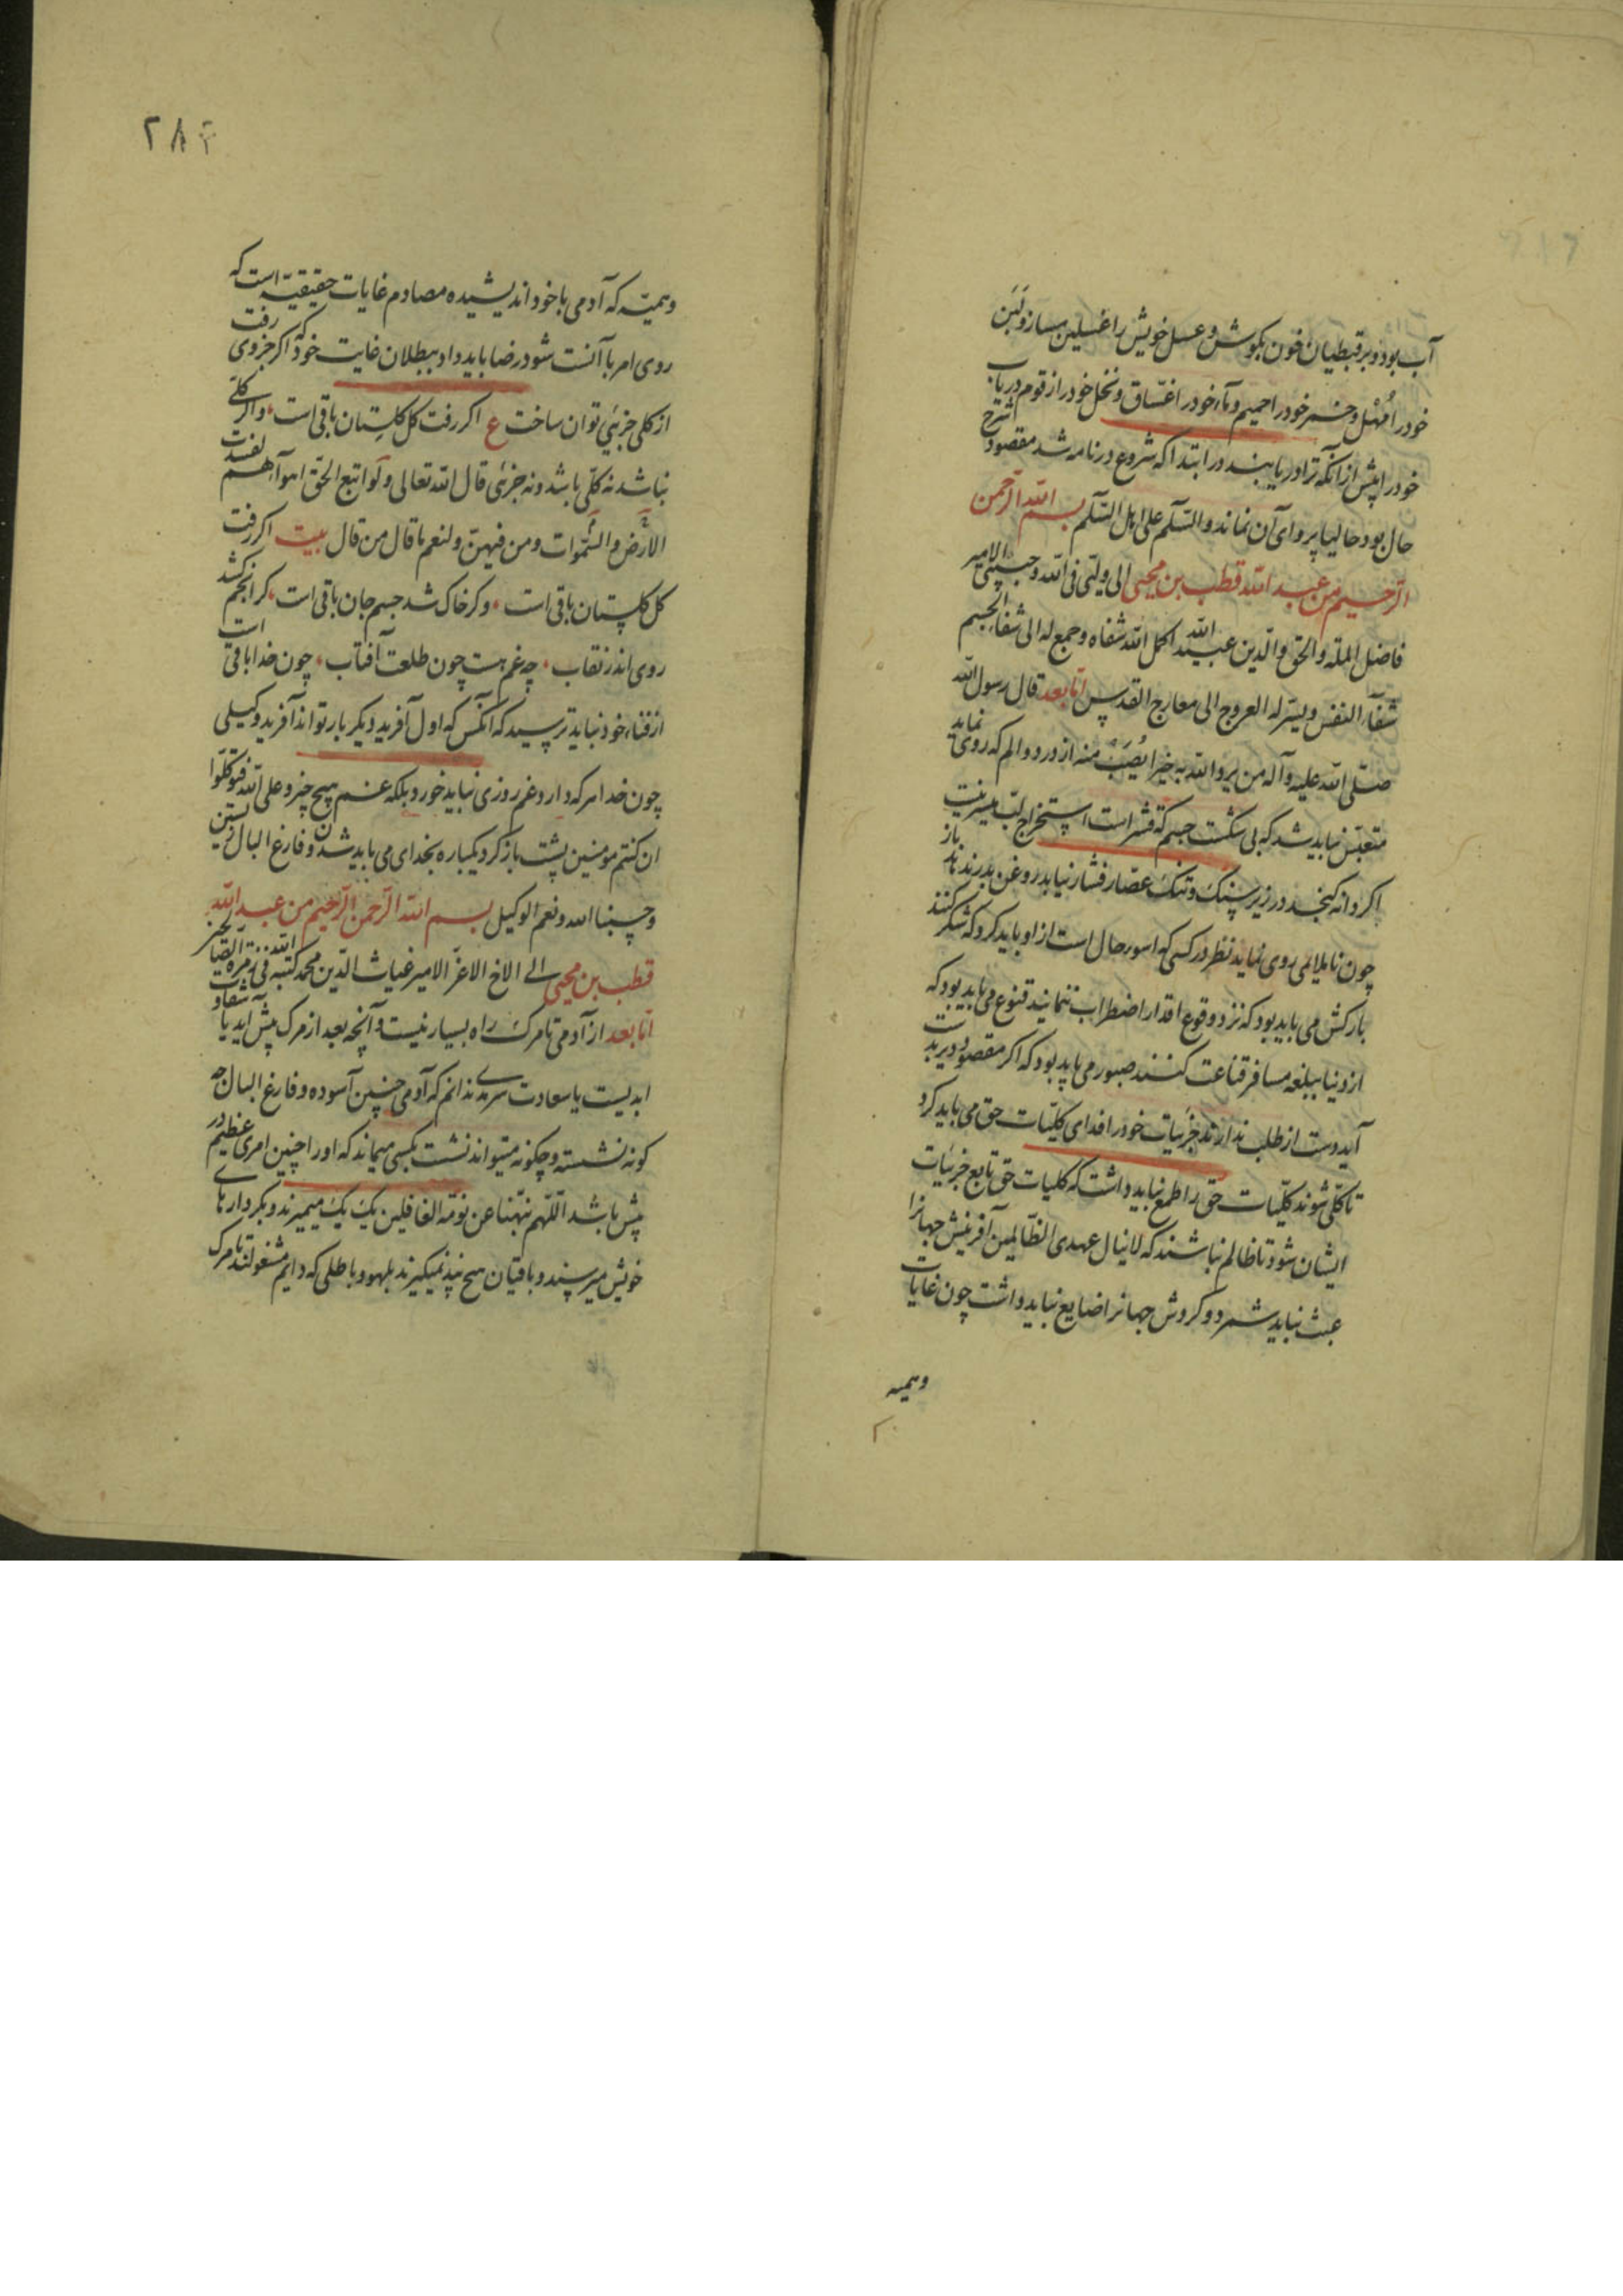 آب بود و بر قبطیان خون بکوش و عسل خویش را غسلین مساز و لبن
خود را مُهل و خمر خود را حمیم و ماء خود را غسّاق و نخل خود را زقوم دریاب
خود را پیش از آنکه ترا دریابند در ابتدا که شروع در نامه شد مقصود شرح
حال بود حالیا پروای آن نماند والسّلم علی اهل السّلم بسم الله الرحمن
الرحیم من عبد الله قطب بن محیی الی ولیّی فی الله و حبیبی الامیر
فاضل الملّه والحق والدین عبید الله اکمل الله شفاه و جمع له الی شفاء الجسم
شفآء النفس و یسّر له العروج الی معارج القدس امّا بعد قال رسول الله
صلّی الله علیه وآله من یرد الله به خیرا یُصَب منه از درد و الم که روی نماید
منقبض نباید شد که بی شکست جسم که قشر است استخراج لبّ میسر نیست
اکر دانه کنجد در زیر سنک و تنک عصار فشار نیابد روغن بدر ندهد باز
چون ناملایمی روی نماید نظر در کسی که اسوء حال است ازو باید کرد که شکر کنند
بارکش می باید بود که نزد وقوع اقدار اضطراب ننمایند قنوع می باید بود که
از دنیا ببلغه مسافر قناعت کنند صبور می باید بود که اکر مقصود دیر بدست
آید دست از طلب ندارند جزئیات خود را فدای کلیّات حق می باید کرد
تا کلّی شوند کلیّات حق را طمع نباید داشت که کلیات حق تابع جزئیات
ایشان شود تا ظالم نباشند که لاینال عهدی الظّالمین آفرینش جهانرا
عبث نباید شمرد و کردش جهانرا ضایع نباید داشت چون غایات
وهمیه
۲۸۴
وهمیّه که آدمی با خود اندیشیده مصادم غایات حقیقیّه است که
روی امر با آنست شود رضا باید داد ببطلان غایت خود که اکر جزوی رفت
از کلی جزیی توان ساخت ع اکر رفت کل کلستان باقی است و اکر کلّی
نباشد نه کلّی باشد و نه جزئی قال الله تعالی وَلَو اتبع الحق اهوآءهم لفسدت
الارض والسّموات ومن فیهنّ ولنعم ما قال من قال بیت اکر رفت
کل کلستان باقی است وکر خاک شد جسم جان باقی است کر انجم کشد
روی اندر نقاب چه غم هست چون طلعت آفتاب چون خدا باقی است
از فناء خود نباید ترسید که آنکس که اول آفرید دیکر بار تواند آفرید وکیلی
چون خدا هر که دارد غم روزی نباید خورد بلکه غم هیچ چیز وعلی الله فتوکلوا
ان کنتم مؤمنین پشت باز کرد یکباره بخدای می باید شدن و فارغ البال زیستن
وحسبنا الله ونعم الوکیل بسم الله الرحمن الرحیم من عبد الله
قطب بن محیی الی الاخ الاعزّ الامیر غیاث الدّین محمد کتبه الله فی زمرة الصّابرین
امّا بعد از آدمی تا مرک راه بسیار نیست و آنچه بعد از مرک پیش آید یا شقاوت
ابدیست یا سعادت سرمدی ندانم که آدمی چنین آسوده و فارغ البال چه
کونه نشسته و چکونه میتواند نشست بکسی میماند که او را چنین امری عظیم در
پیش باشد اللّهم نبّهنا عن نومة الغافلین یک یک میمیرند و بکردارهای
خویش میرسند و باقیان هیچ پند نمیکیرند بلهو و باطلی که دایم مشغولند تا مرک